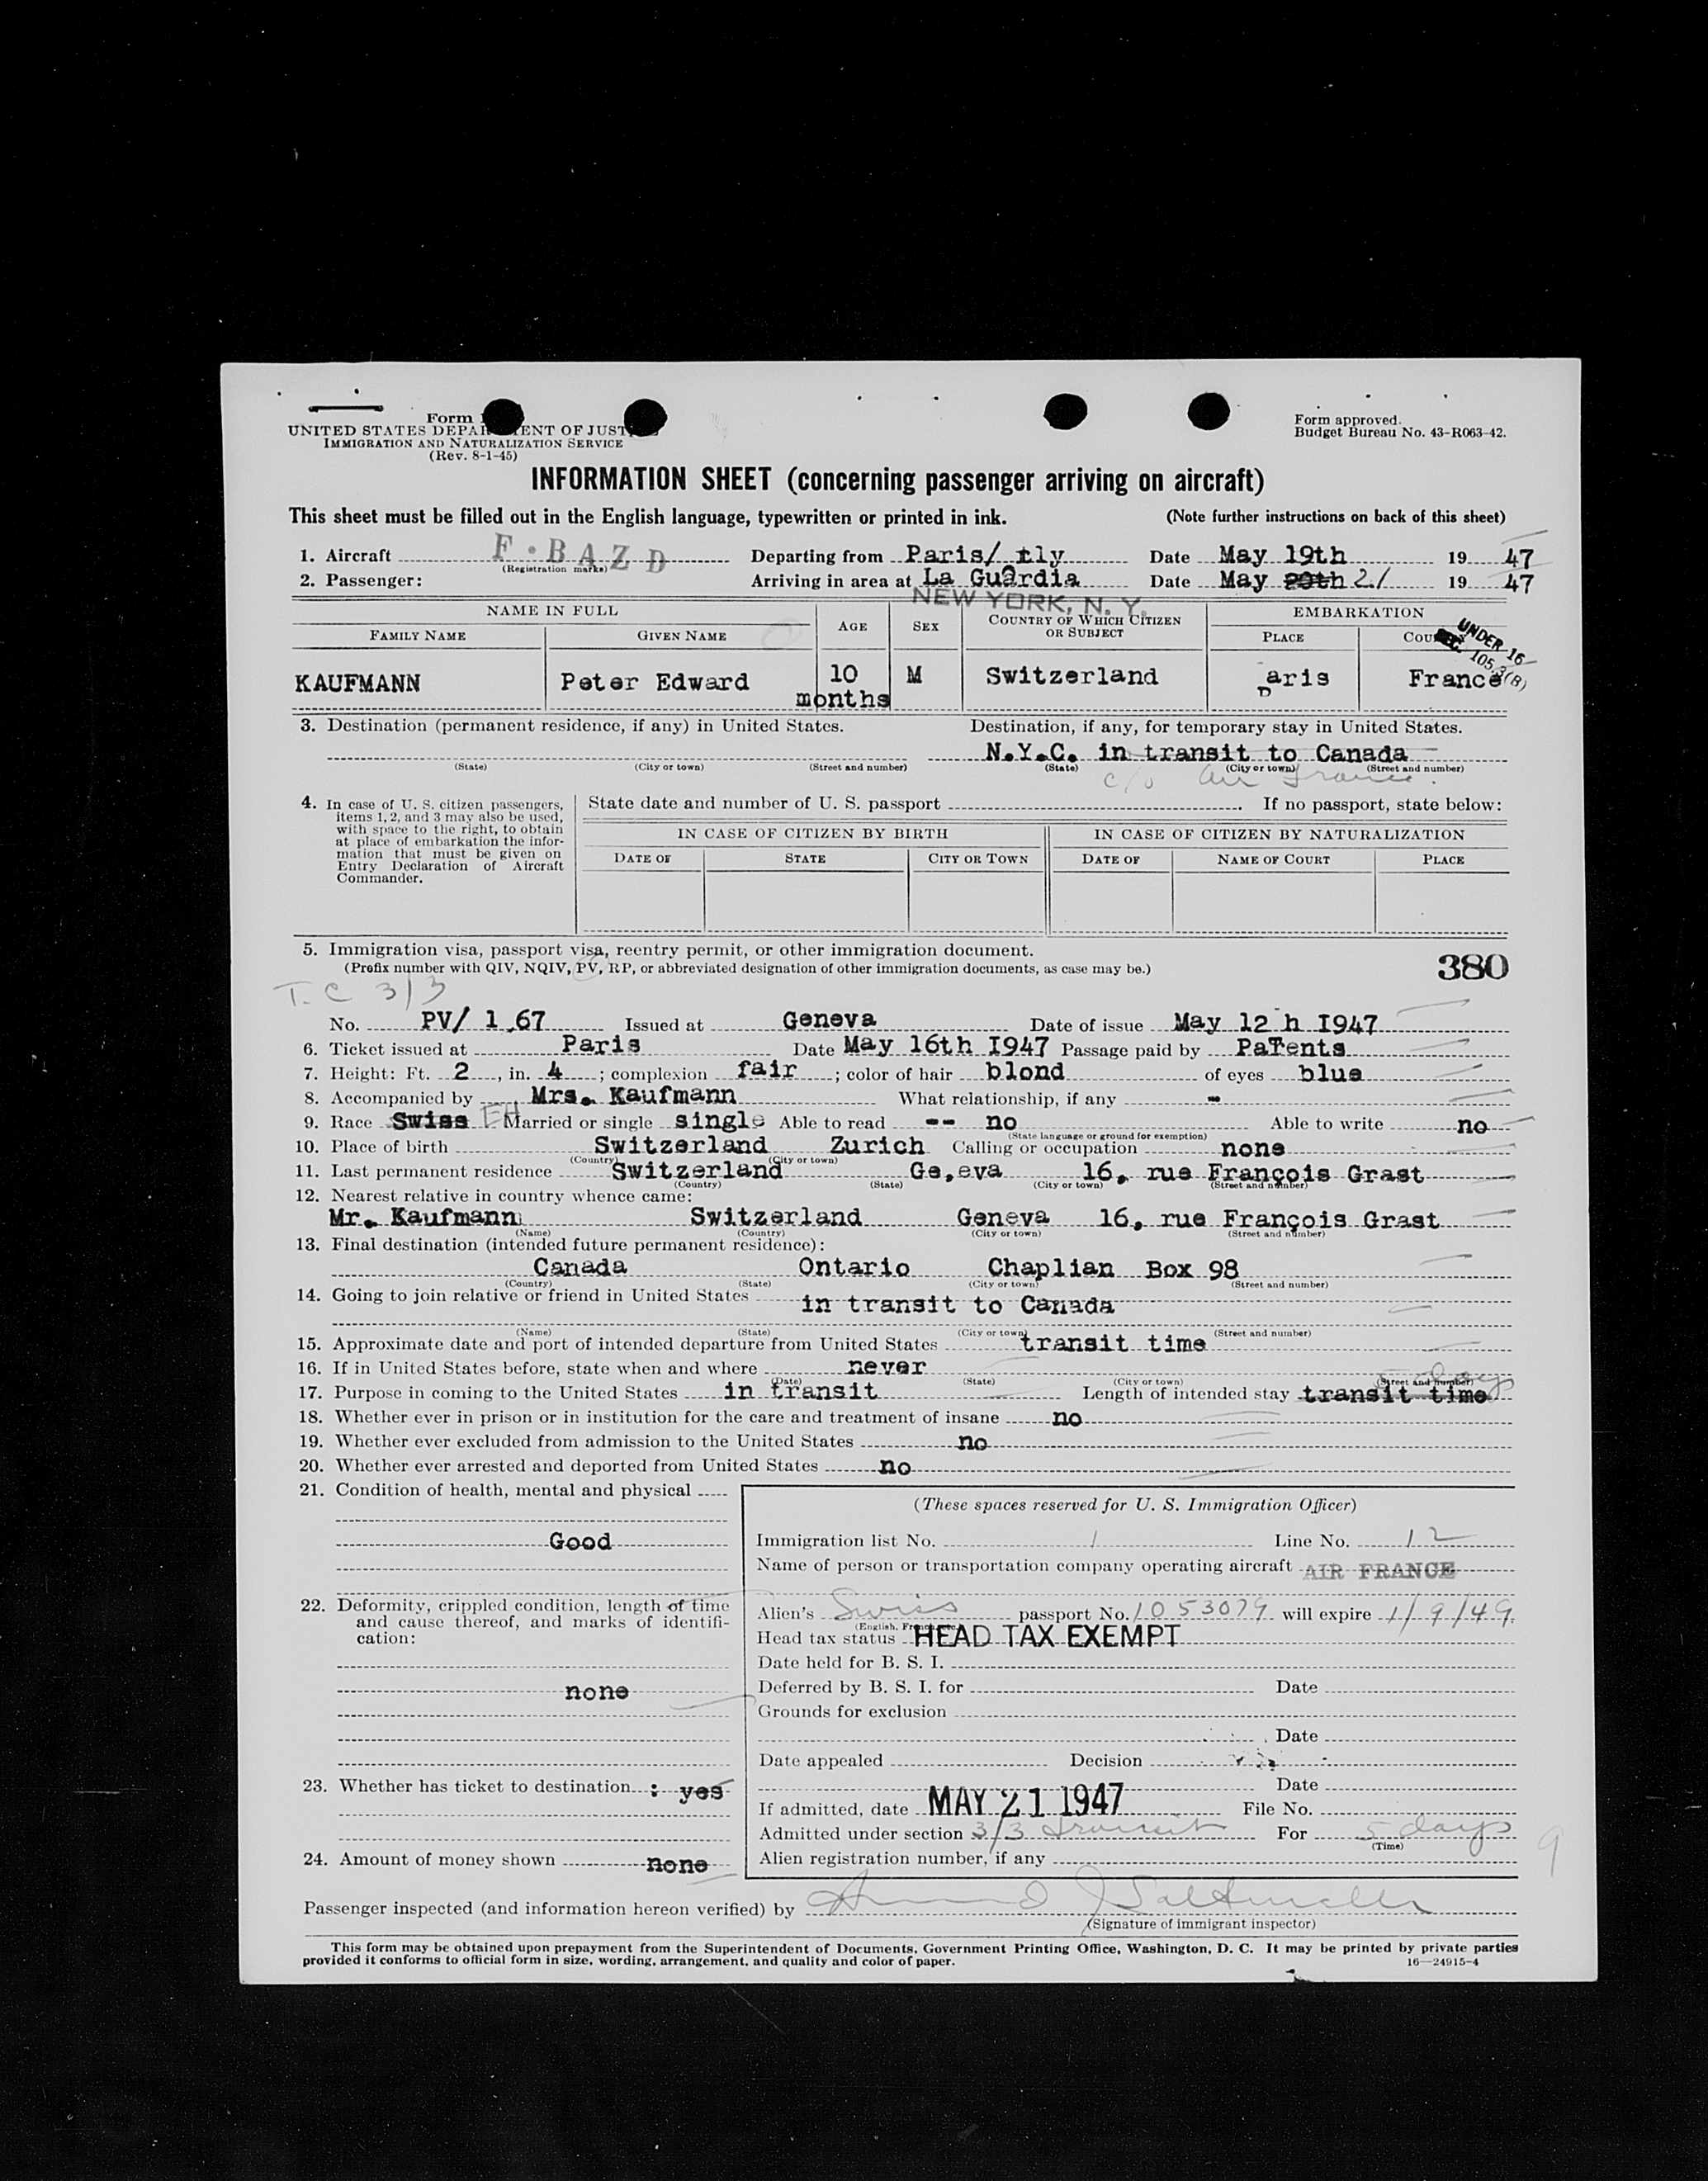 Form
UNITED STATES DEPARTMENT OF JUSTICE
IMMIGRATION AND NATURALIZATION SERVICE
(Rev. 8-1-45)
Form approved.
Budget Bureau No. 43-R063-42.
INFORMATION SHEET (concerning passenger arriving on aircraft)
This sheet must be filled out in the English language, typewritten or printed in ink. (Note further instructions on back of this sheet)
1. Aircraft F·BAZD Departing from Paris/ rly Date May 19th 19 47
(Registration marks)
2. Passenger: Arriving in area at La Guardia Date May 20th 21 19 47
NEW YORK, N. Y.
NAME IN FULL AGE SEX COUNTRY OF WHICH CITIZEN OR SUBJECT EMBARKATION
FAMILY NAME GIVEN NAME PLACE COUNTRY
UNDER 16
SEC. 105.3(B)
KAUFMANN Peter Edward 10 months M Switzerland Paris France
3. Destination (permanent residence, if any) in United States. Destination, if any, for temporary stay in United States.
N.Y.C. in transit to Canada
(State) (City or town) (Street and number) (State) (City or town) (Street and number)
c/o Air France.
4. In case of U. S. citizen passengers, items 1, 2, and 3 may also be used, with space to the right, to obtain at place of embarkation the information that must be given on Entry Declaration of Aircraft Commander.
State date and number of U. S. passport . If no passport, state below:
IN CASE OF CITIZEN BY BIRTH IN CASE OF CITIZEN BY NATURALIZATION
DATE OF STATE CITY OR TOWN DATE OF NAME OF COURT PLACE
5. Immigration visa, passport visa, reentry permit, or other immigration document.
(Prefix number with QIV, NQIV, PV, RP, or abbreviated designation of other immigration documents, as case may be.) 380
T. C 3/3
No. PV/ 1,67 Issued at Geneva Date of issue May 12 h I947
6. Ticket issued at Paris Date May 16th I947 Passage paid by Parents
7. Height: Ft. 2, in. 4; complexion fair; color of hair blond of eyes blue
8. Accompanied by Mrs. Kaufmann What relationship, if any -
9. Race Swiss Married or single single Able to read -- no Able to write no
(State language or ground for exemption)
10. Place of birth Switzerland Zurich Calling or occupation none
(Country) (City or town)
11. Last permanent residence Switzerland Ge,eva 16, rue François Grast
(Country) (State) (City or town) (Street and number)
12. Nearest relative in country whence came:
Mr. Kaufmann Switzerland Geneva 16, rue François Grast
(Name) (Country) (City or town) (Street and number)
13. Final destination (intended future permanent residence):
Canada Ontario Chaplian Box 98
(Country) (State) (City or town) (Street and number)
14. Going to join relative or friend in United States in transit to Canada
(Name) (State) (City or town) (Street and number)
15. Approximate date and port of intended departure from United States transit time
16. If in United States before, state when and where never
(Date) (State) (City or town) (Street and number)
5 days
17. Purpose in coming to the United States in transit Length of intended stay transit time
18. Whether ever in prison or in institution for the care and treatment of insane no
19. Whether ever excluded from admission to the United States no
20. Whether ever arrested and deported from United States no
21. Condition of health, mental and physical
Good
22. Deformity, crippled condition, length of time and cause thereof, and marks of identification:
none
23. Whether has ticket to destination : yes
24. Amount of money shown none
(These spaces reserved for U. S. Immigration Officer)
Immigration list No. 1 Line No. 12
Name of person or transportation company operating aircraft AIR FRANCE
Alien's Swiss passport No. 1053079 will expire 1/9/49
Head tax status HEAD TAX EXEMPT
Date held for B. S. I.
Deferred by B. S. I. for Date
Grounds for exclusion
Date
Date appealed Decision
Date
If admitted, date MAY 21 1947 File No.
Admitted under section 3/3 transit For 5 days
(Time)
Alien registration number, if any
9
Passenger inspected (and information hereon verified) by
(Signature of immigrant inspector)
This form may be obtained upon prepayment from the Superintendent of Documents, Government Printing Office, Washington, D. C. It may be printed by private parties
provided it conforms to official form in size, wording, arrangement, and quality and color of paper. 16—24915-4